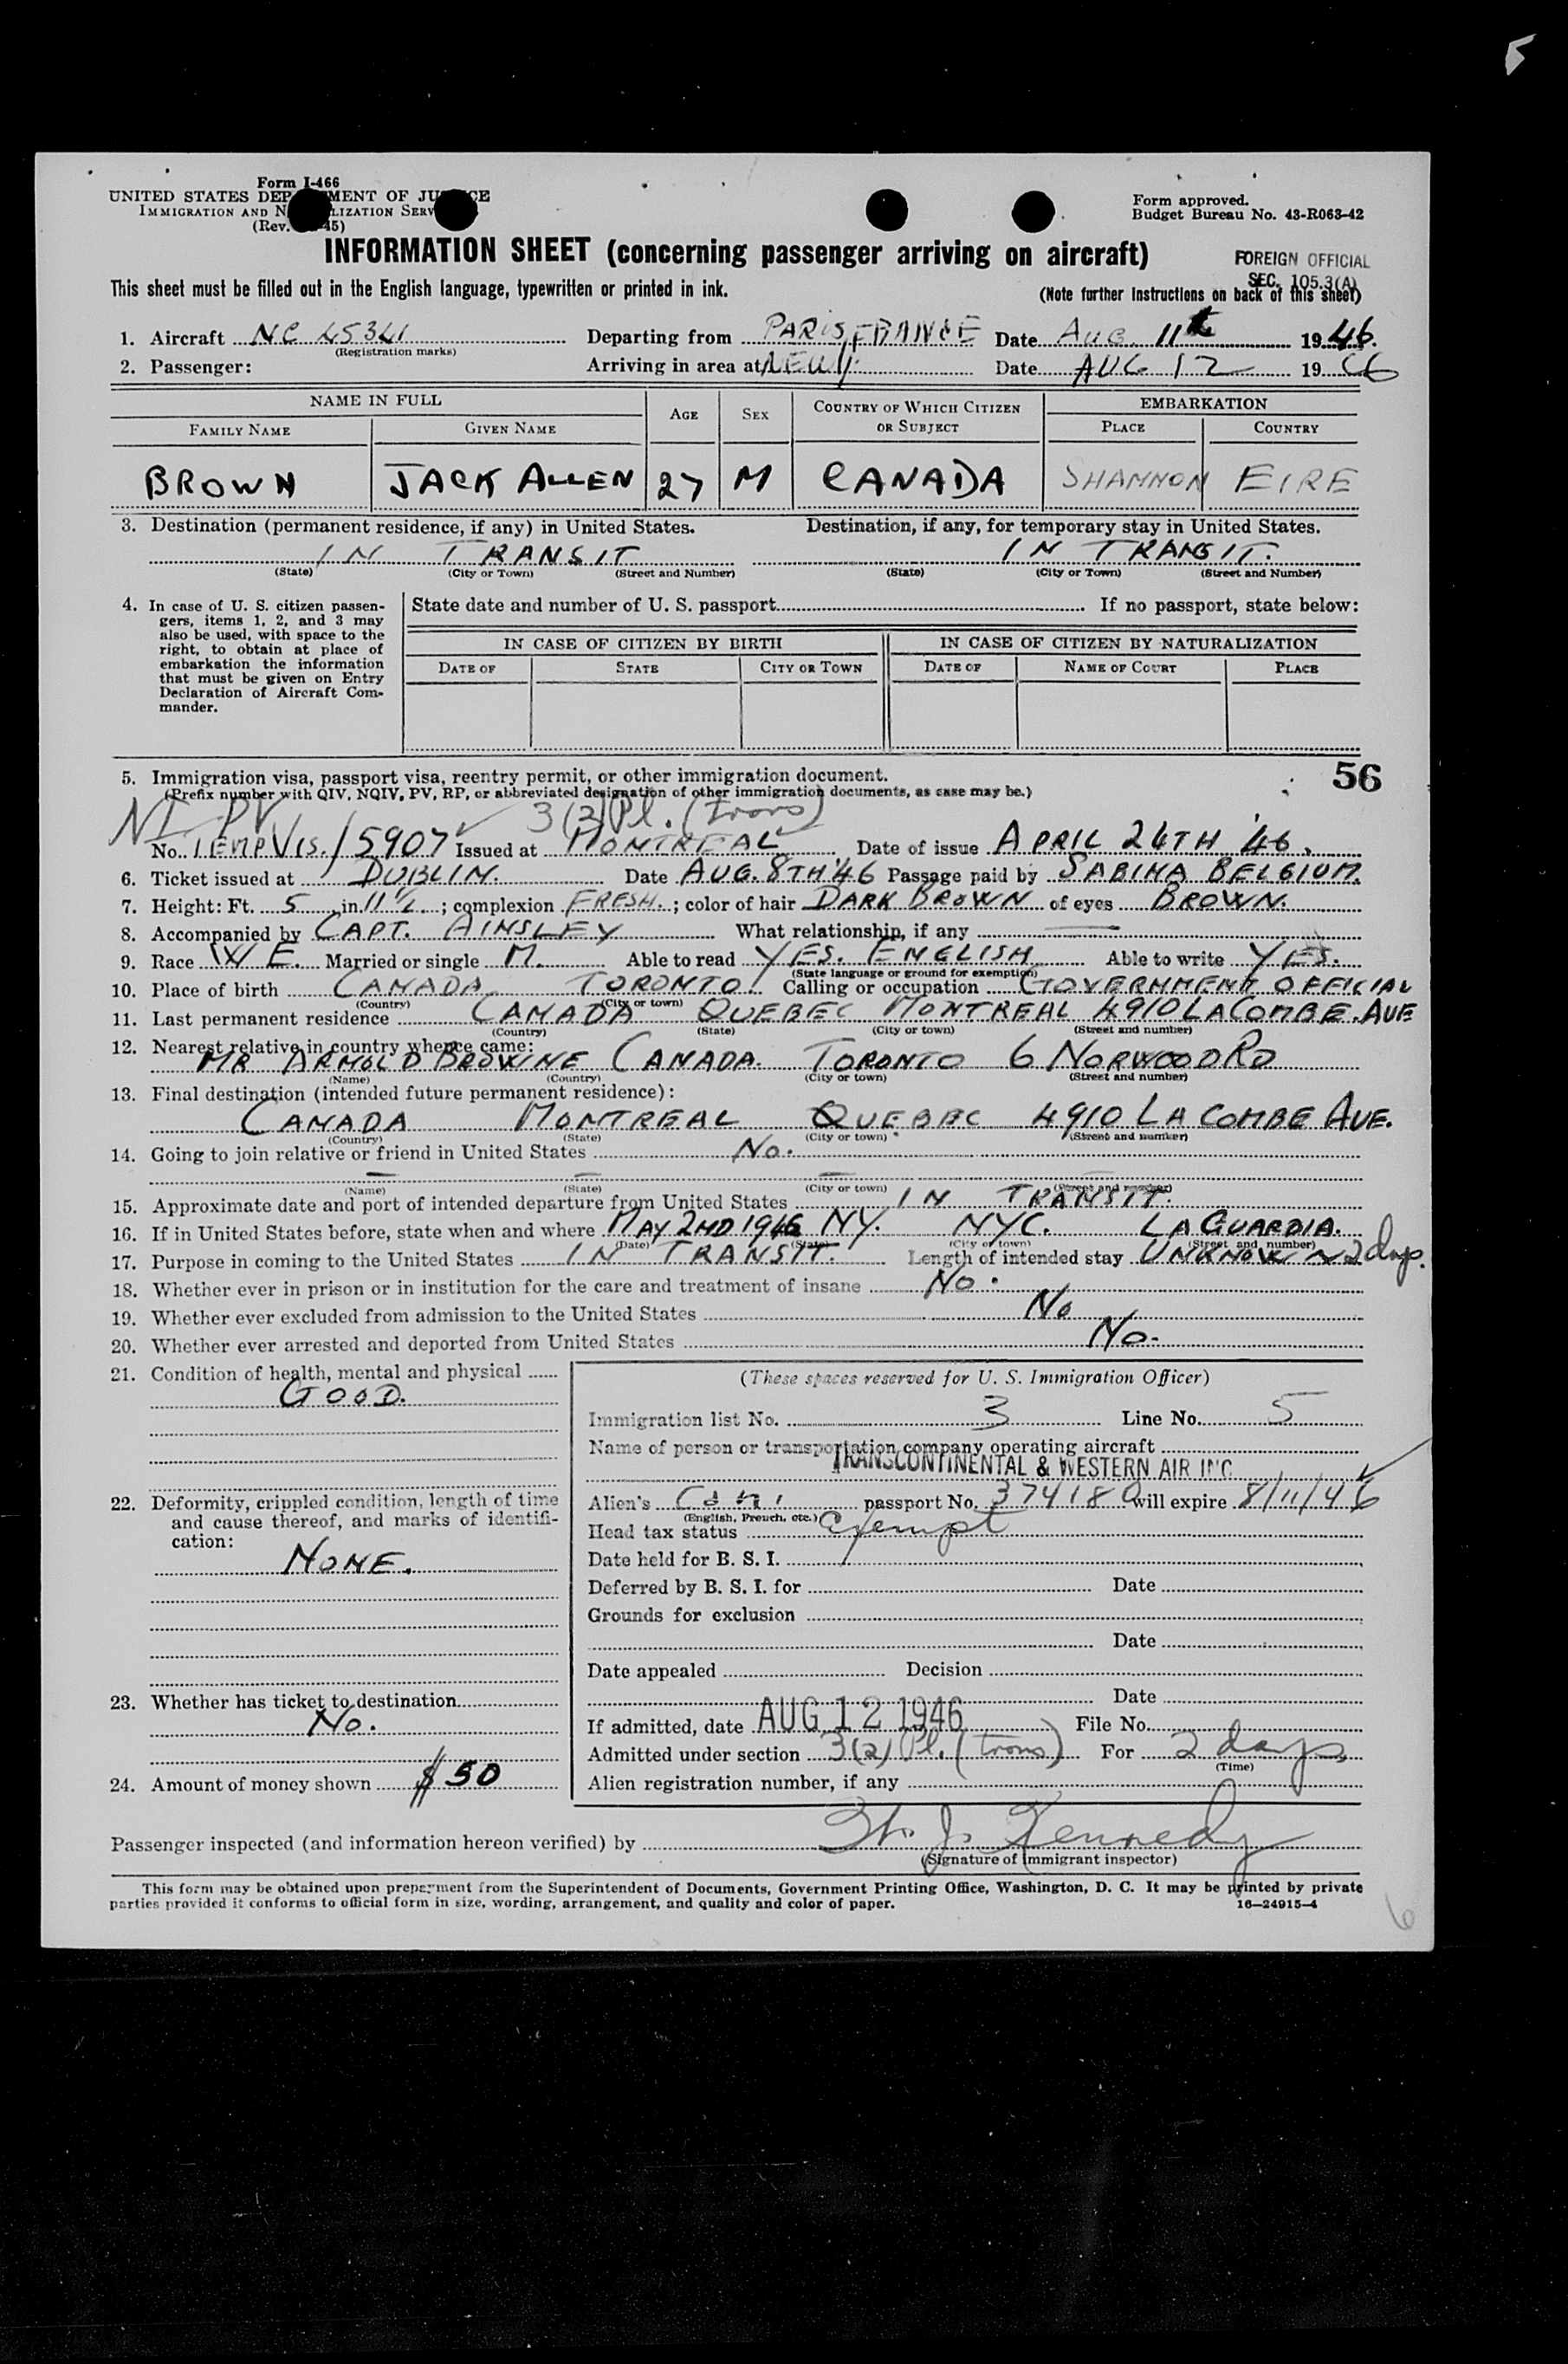 5
Form I-466
UNITED STATES DEP MENT OF JU CE
IMMIGRATION AND N LIZATION SERV
(Rev. 45)
Form approved.
Budget Bureau No. 43-R063-42
INFORMATION SHEET (concerning passenger arriving on aircraft)
FOREIGN OFFICIAL
SEC. 105.3(A)
This sheet must be filled out in the English language, typewritten or printed in ink.
(Note further instructions on back of this sheet)
1. Aircraft NC 45341 Departing from PARIS, FRANCE Date AUG 11th 1946.
(Registration marks)
2. Passenger: Arriving in area at NEW Y. Date AUG 12 1946
NAME IN FULL AGE SEX COUNTRY OF WHICH CITIZEN OR SUBJECT EMBARKATION
FAMILY NAME GIVEN NAME PLACE COUNTRY
BROWN JACK ALLEN 27 M CANADA SHANNON EIRE
3. Destination (permanent residence, if any) in United States. Destination, if any, for temporary stay in United States.
IN TRANSIT IN TRANSIT.
(State) (City or Town) (Street and Number) (State) (City or Town) (Street and Number)
4. In case of U. S. citizen passen-
gers, items 1, 2, and 3 may
also be used, with space to the
right, to obtain at place of
embarkation the information
that must be given on Entry
Declaration of Aircraft Com-
mander.
State date and number of U. S. passport If no passport, state below:
IN CASE OF CITIZEN BY BIRTH IN CASE OF CITIZEN BY NATURALIZATION
DATE OF STATE CITY OR TOWN DATE OF NAME OF COURT PLACE
5. Immigration visa, passport visa, reentry permit, or other immigration document.
56
(Prefix number with QIV, NQIV, PV, RP, or abbreviated designation of other immigration documents, as case may be.)
NI PV 3(2) Pl. (trans)
No. TEMP VIS. 15907 Issued at MONTREAL Date of issue APRIL 24TH '46.
6. Ticket issued at DUBLIN. Date AUG. 8TH '46 Passage paid by SABINA BELGIUM.
7. Height: Ft. 5 in. 11 1/2. ; complexion FRESH. ; color of hair DARK BROWN of eyes BROWN.
8. Accompanied by CAPT. AINSLEY What relationship, if any —
9. Race W E. Married or single M. Able to read YES. ENGLISH Able to write YES.
(State language or ground for exemption)
10. Place of birth CANADA TORONTO. Calling or occupation GOVERNMENT OFFICIAL
(Country) (City or town)
11. Last permanent residence CANADA QUEBEC MONTREAL 4910 LACOMBE. AVE
(Country) (State) (City or town) (Street and number)
12. Nearest relative in country whence came:
MR ARNOLD BROWNE CANADA. TORONTO 6 NORWOOD RD
(Name) (Country) (City or town) (Street and number)
13. Final destination (intended future permanent residence):
CANADA MONTREAL QUEBEC 4910 LA COMBE AVE.
(Country) (State) (City or town) (Street and number)
14. Going to join relative or friend in United States No.
— — — —
(Name) (State) (City or town) (Street and number)
15. Approximate date and port of intended departure from United States IN TRANSIT.
16. If in United States before, state when and where MAY 2ND 1946 NY. NYC. LA GUARDIA.
(Date) (State) (City or town) (Street and number)
17. Purpose in coming to the United States IN TRANSIT. Length of intended stay UNKNOWN 2 days.
18. Whether ever in prison or in institution for the care and treatment of insane No.
19. Whether ever excluded from admission to the United States No
20. Whether ever arrested and deported from United States No.
21. Condition of health, mental and physical
GOOD.
22. Deformity, crippled condition, length of time
and cause thereof, and marks of identifi-
cation:
NONE.
23. Whether has ticket to destination
No.
24. Amount of money shown $50
(These spaces reserved for U. S. Immigration Officer)
Immigration list No. 3 Line No. 5
Name of person or transportation company operating aircraft
TRANSCONTINENTAL & WESTERN AIR INC
Alien's Can. passport No. 374180 will expire 8/11/46
(English, French, etc.)
Head tax status exempt
Date held for B. S. I.
Deferred by B. S. I. for Date
Grounds for exclusion
Date
Date appealed Decision
Date
If admitted, date AUG 12 1946 File No.
Admitted under section 3(2) Pl. (trans) For 2 days
(Time)
Alien registration number, if any
Passenger inspected (and information hereon verified) by J. Kennedy
(Signature of immigrant inspector)
This form may be obtained upon prepayment from the Superintendent of Documents, Government Printing Office, Washington, D. C. It may be printed by private
parties provided it conforms to official form in size, wording, arrangement, and quality and color of paper. 16—24915-4
6